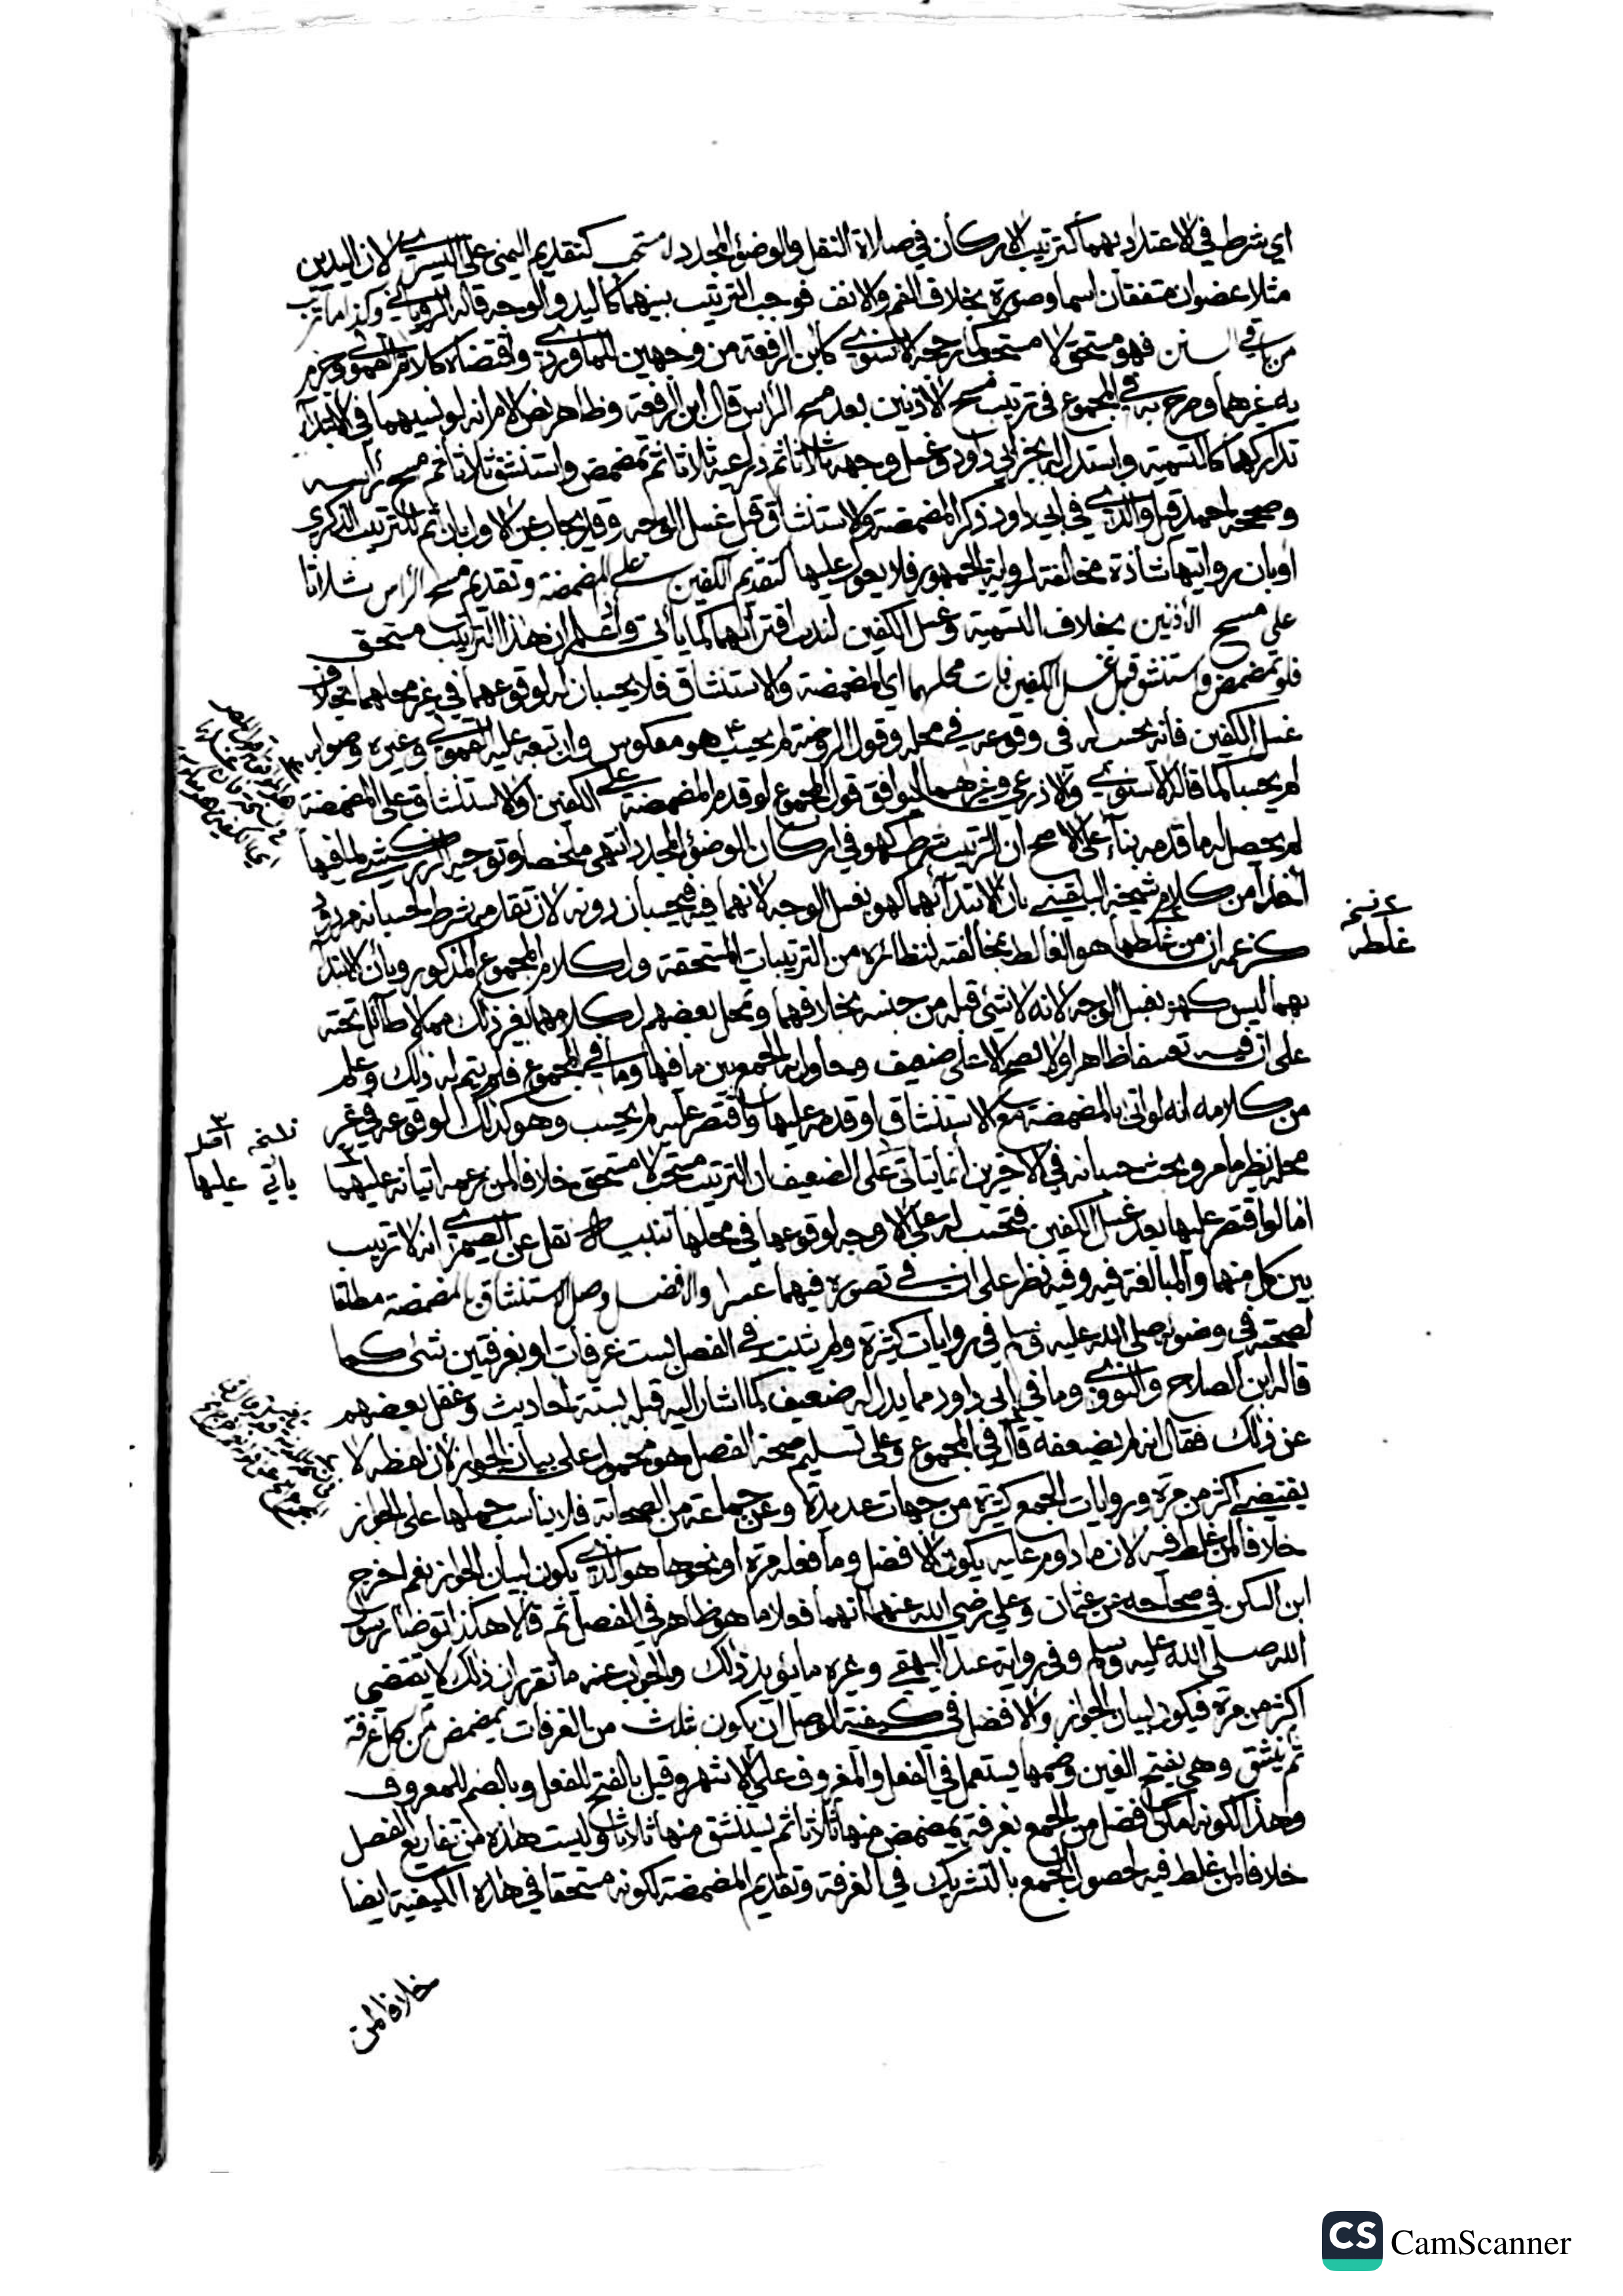 اي شرط في الاعتداد بهما كترتيب الاركان في صلاة النفل والوضوء المجدد لا مستحب كتقديم اليمنى على اليسرى لان اليدين
مثلا عضوان متفقان اسما وصورة بخلاف الفم والانف فوجب الترتيب بينهما كاليد والوجه قاله الروياني وكذا ما ترتب
من باقي السنن فهو مستحق لا مستحب كما رجحه الاسنوي كابن الرفعة من وجهين للماوردي واقتضاه كلام القمولي وجزم
به غيرهما وصرح به في المجموع في ترتيب مسح الاذنين بعد مسح الراس قال ابن الرفعة وظاهر نص الام انه لو نسيهما في الابتداء
تداركهما كالتسمية واستدل له بخبر ابي داود وغسل وجهه ثلاثا ثم ذراعيه ثلاثا ثم تمضمض واستنشق ثلاثا ثم مسح رأسه
وصححه احمد قيل والذي في ابي داود ذكر المضمضة والاستنشاق قبل غسل الوجه وقد يجاب عن الاول بان ثم للترتيب الذكري
او بان روايتها شاذة مخالفة لرواية الجمهور فلا يعول عليها كتقديم الكفين على المضمضة وتقديم مسح الراس ثلاثا
على مسح الاذنين بخلاف التسمية وغسل الكفين لندب اقترانهما كما يأتي واعلم ان هذا الترتيب مستحق
فلو تمضمض واستنشق قبل غسل الكفين فات محلهما اي المضمضة والاستنشاق فلا يحسبان له لوقوعهما في غير محلهما بخلاف
غسل الكفين فانه يحسب له في وقوعه في محله وقول الروضة لم يحسب هو معكوس وان تبعه عليه القمولي وغيره وصوابه
لم يحسبا كما قاله الاسنوي والاذرعي وغيرهما ليوافق قول المجموع لو قدم المضمضة على الكفين او الاستنشاق على المضمضة
لم يحصل له ما قدمه بناء على الاصح ان الترتيب شرط كهو في اركان الوضوء المجدد انتهى ملخصا وتوجيه الزركشي لما فيها
أخذا من كلام شيخه البلقيني بان الابتداء بهما كهو بغسل الوجه لانهما فيه فيحسبان دونه لان تقدمه شرط لحسبانه مردود
كزعمه ان من غلطها هو الغالط بمخالفته لنظائره من الترتيبات المستحقة ولكلام المجموع المذكور وبأن الابتداء
بهما ليس كهو بغسل الوجه لانه لا شيء قبله من جنسه بخلافهما وتمحل بعضهم لكلامهما بغير ذلك مما لا طائل تحته
على ان فيه تعسفا ظاهرا ولا يصح الا على ضعيف وحاول به الجمع بين ما فيها وما في المجموع فلم يتم له ذلك وعلم
من كلامه انه لو اتى بالمضمضة مع الاستنشاق او قدمه عليها واقتصر عليه لم يحسب وهو كذلك لوقوعه في غير
محله نظير ما مر وبحث حسبانه في الاخيرين انما يتأتى على الضعيف ان الترتيب مستحب لا مستحق خلافا لمن زعمه اتيانه عليهما
اما لو اقتصر عليها بعد غسل الكفين فتحسب له على الاوجه لوقوعها في محلها تنبيه نقل عن الصيمري انه لا ترتيب
بين كل منهما والمبالغة فيه وفيه نظر على ان في تصوره فيهما عسرا والافضل وصل الاستنشاق بالمضمضة مطلقا
لصحته في وضوئه صلى الله عليه وسلم في روايات كثيرة ولم يثبت في الفصل بست غرفات او بغرفتين شيء كما
قاله ابن الصلاح والنووي وما في ابي داود مما يدل له ضعيف كما اشار اليه قبله بستة احاديث وغفل بعضهم
عن ذلك فقال انه لم يضعفه قال في المجموع وعلى تسليم صحة الفصل فهو محمول على بيان الجواز لان لفظه لا
يقتضي أكثر من مرة وروايات الجمع كثيرة من جهات عديدة وعن جماعة من الصحابة فلا يناسب حملها على الجواز
خلافا لمن غلط فيه لان ما دووم عليه يكون الافضل وما فعله مرة او نحوها هو الذي يكون لبيان الجواز نعم اخرج
ابن السكن في صحاحه عن عثمان وعلي رضي الله عنهما انهما فعلا ما هو ظاهر في الفصل ثم قالا هكذا توضأ رسول
الله صلى الله عليه وسلم وفي رواية عند البيهقي وغيره ما يؤيد ذلك والجواب عنه ما تقرر ان ذلك لا يقتضي
اكثر من مرة فيكون لبيان الجواز والافضل في كيفية الوصل ان يكون بثلاث من الغرفات يمضمض من كل غرفة
ثم ينشق وهي بفتح الغين وضمها يستعمل في الفعل والمغروف على الاشهر وقيل بالفتح للفعل وبالضم للمعروف
وهذا لكونه امكن افضل من الجمع بغرفة يمضمض منها ثلاثا ثم يستنشق منها ثلاثا وليست هذه من تفاريع الفصل
خلافا لمن غلط فيه لحصول الجمع بالتشريك في الغرفة وتقديم المضمضة لكونه مستحقا في هذه الكيفية ايضا
خلافا لمن
نسخ
غلطه
يأتي عليها
CS CamScanner